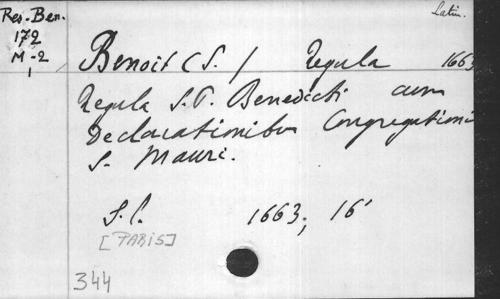 Res. Ben.
172
M-2
1
Latin.
Benoit (S. / Regula 1663
Regula S.P. Benedicti cum
Declarationibus Congregationis
S. Mauri.
S.l. 1663, 16'
[PARIS]
344